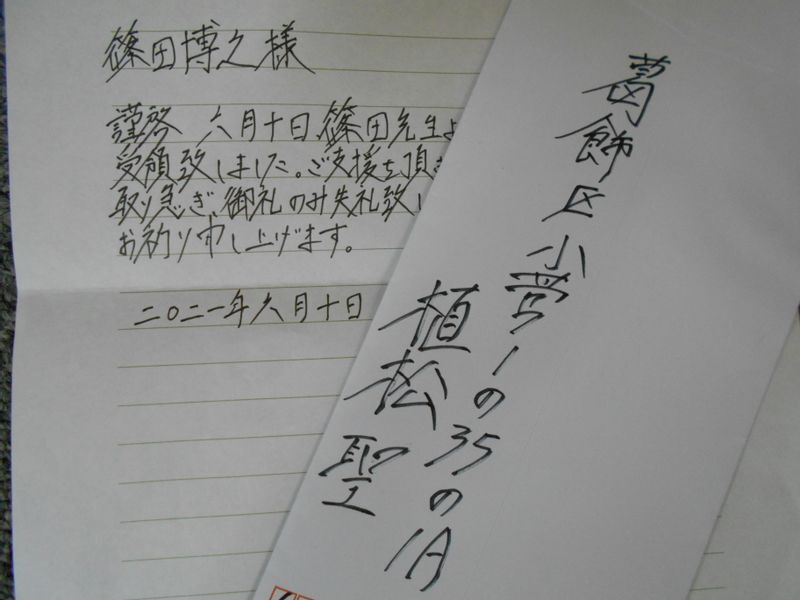 篠田博之様
謹啓 六月十日、篠田先生よ
受領致しました。ご支援を頂き
取り急ぎ、御礼のみ失礼致し
お祈り申し上げます。
二〇二一年六月十日
葛飾区小菅1の35の1A
植松聖